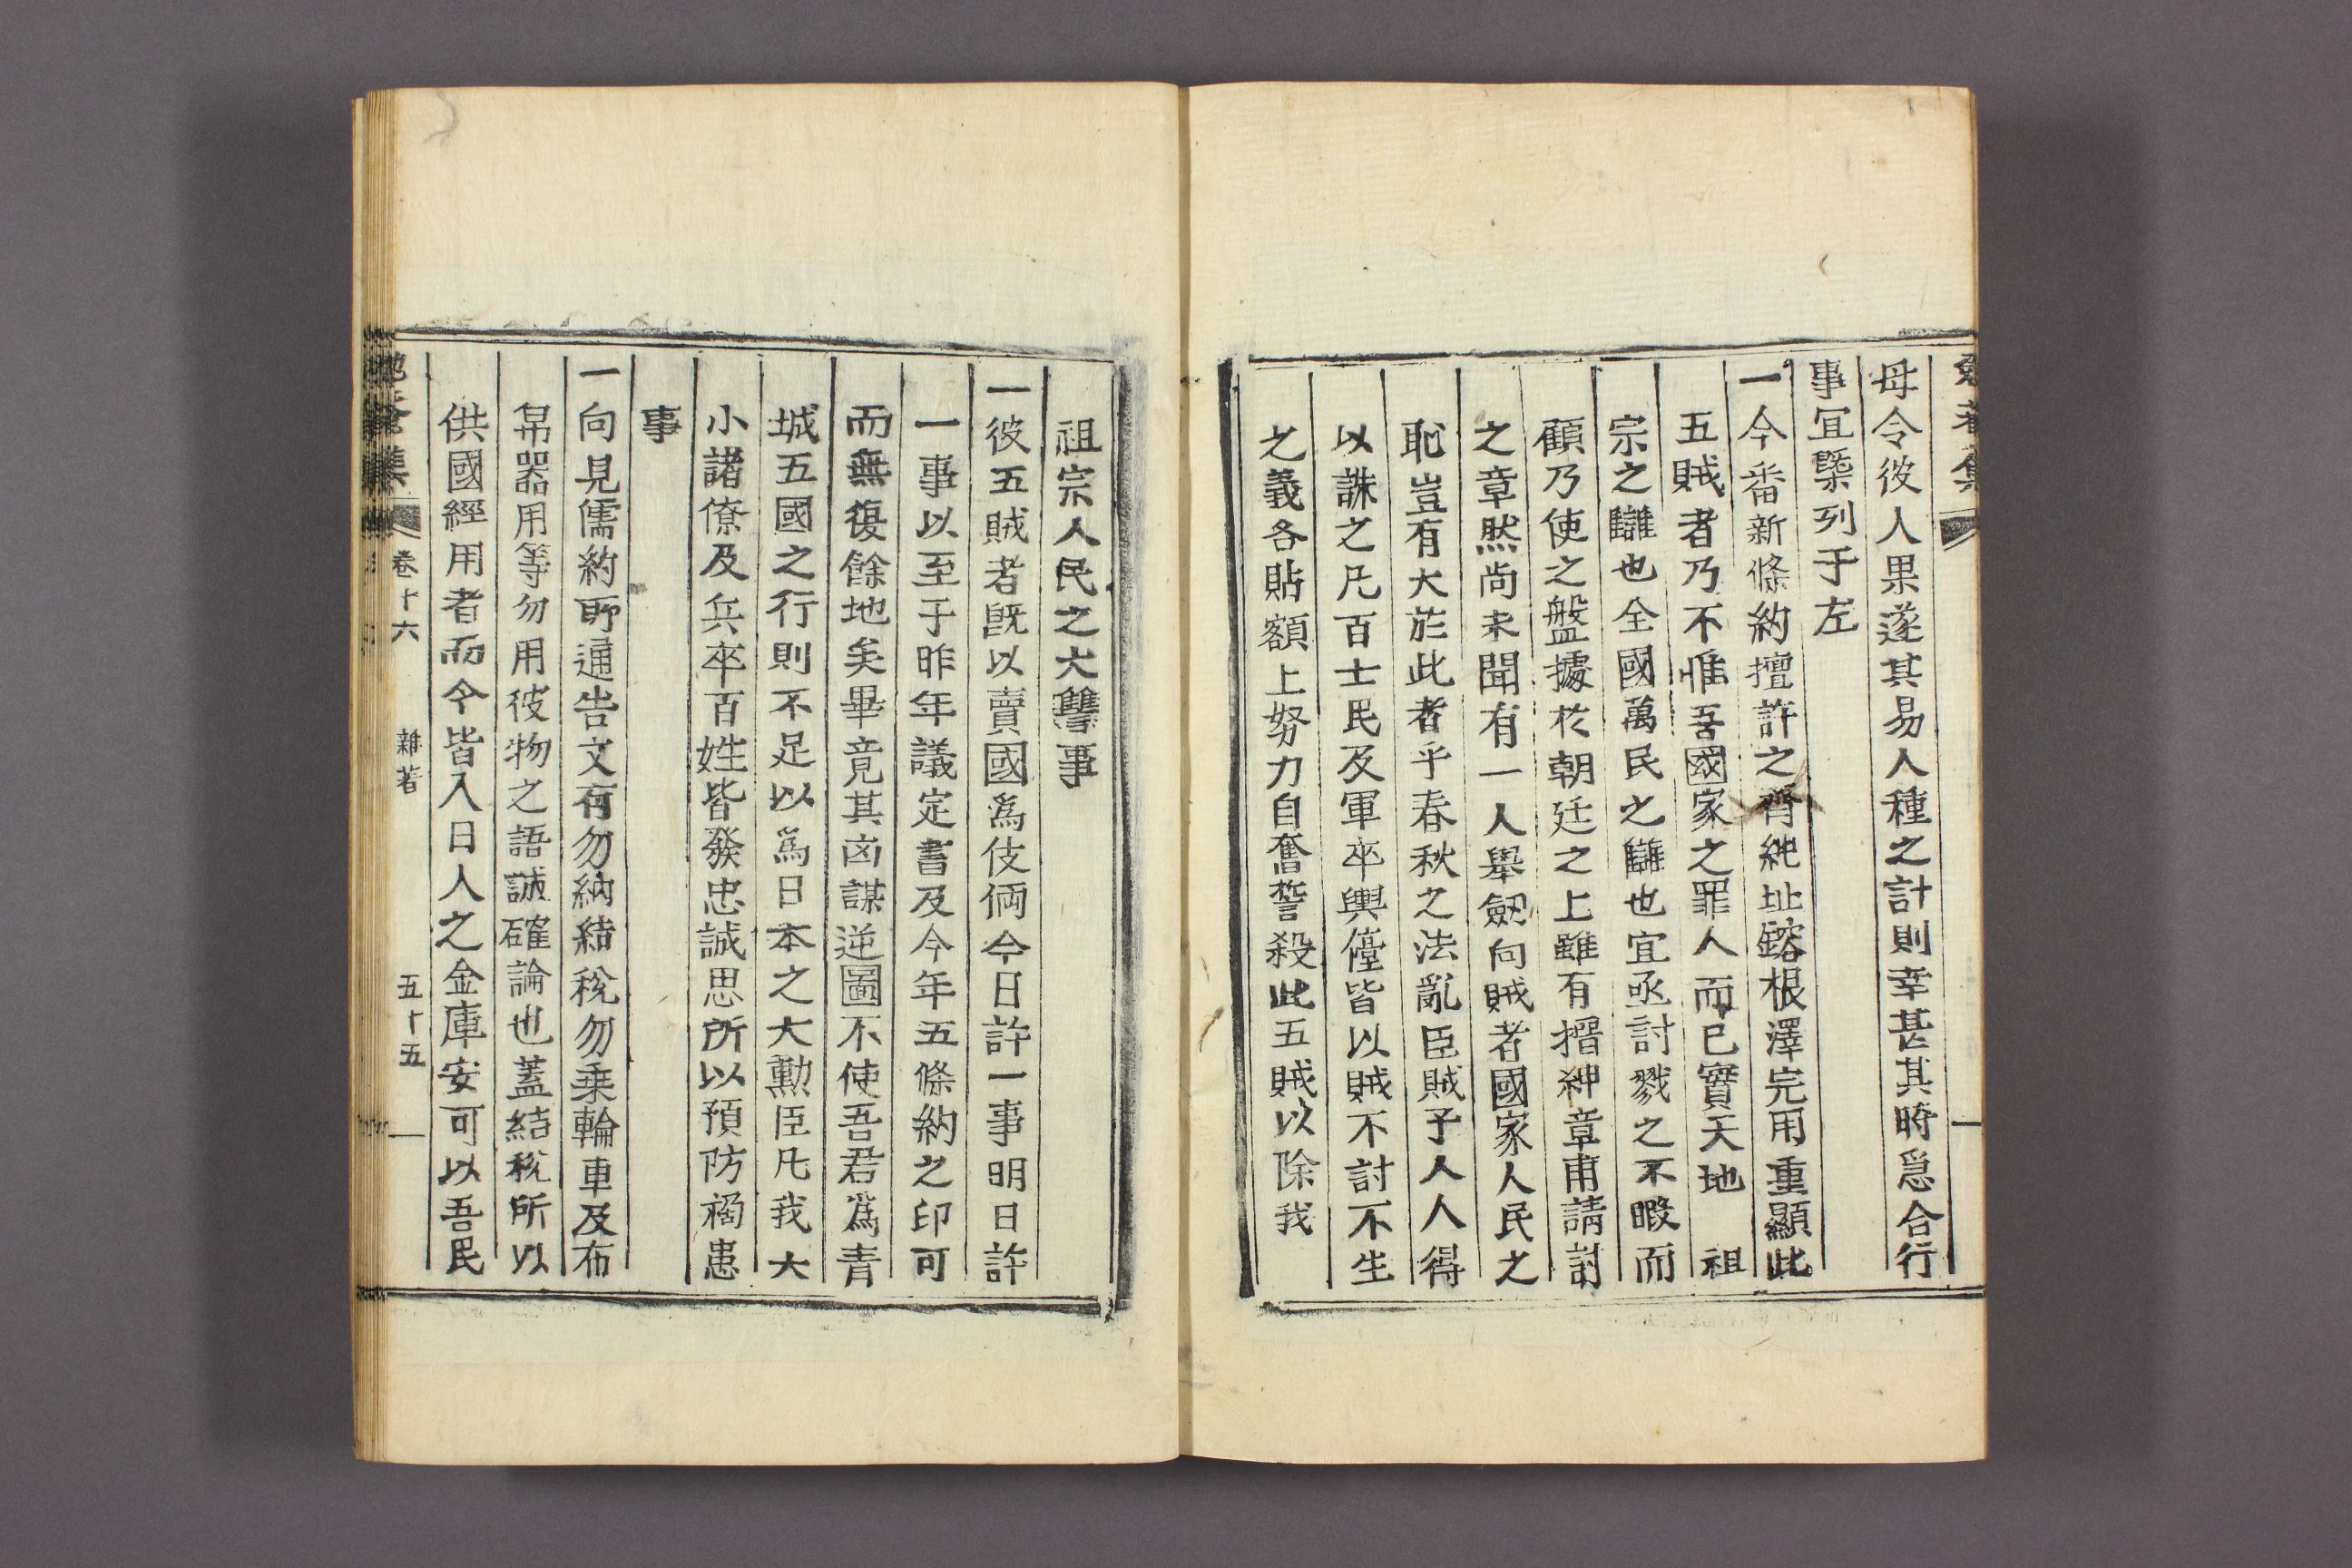 毋令彼人果遂其易人種之計則幸甚其時急合行
事宜槩列于左
一今番新條約擅許之齊純址鎔根澤完用重顯此
五賊者乃不惟吾國家之罪人而已實天地　祖
宗之讎也全國萬民之讎也宜亟討戮之不暇而
顧乃使之盤據於朝廷之上雖有搢紳章甫請討
之章然尚未聞有一人舉劒向賊者國家人民之
恥豈有大於此者乎春秋之法亂臣賊子人人得
以誅之凡百士民及軍卒輿儓皆以賊不討不生
之義各貼額上努力自奮誓殺此五賊以除我
祖宗人民之大讐事
一彼五賊者旣以賣國爲伎倆今日許一事明日許
一事以至于昨年議定書及今年五條約之印可
而無復餘地矣畢竟其凶謀逆圖不使吾君爲青
城五國之行則不足以爲日本之大勳臣凡我大
小諸僚及兵卒百姓皆發忠誠思所以預防禍患
事
一向見儒約所通告文有勿納結稅勿乘輪車及布
帛器用等勿用彼物之語誠確論也蓋結稅所以
供國經用者而今皆入日人之金庫安可以吾民
卷十六　雜著　五十五